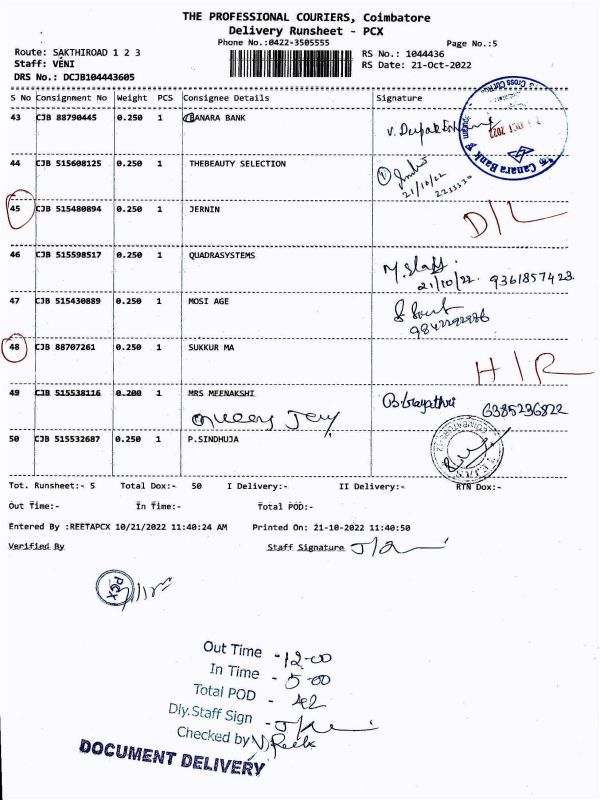 THE PROFESSIONAL COURIERS, Coimbatore
Delivery Runsheet - PCX
Phone No.:0422-3505555 Page No.:5
Route: SAKTHIROAD 1 2 3 RS No.: 1044436
Staff: VENI RS Date: 21-Oct-2022
DRS No.: DCJB104443605
S No Consignment No Weight PCS Consignee Details Signature
43 CJB 88790445 0.250 1 CANARA BANK
Canara Bank
44 CJB 515608125 0.250 1 THEBEAUTY SELECTION
21/10/22
45 CJB 515480894 0.250 1 JERNIN D/L
46 CJB 515598517 0.250 1 QUADRASYSTEMS
21/10/22. 9361857423
47 CJB 515430889 0.250 1 MOSI AGE
9842292986
48 CJB 88707261 0.250 1 SUKKUR MA H/R
49 CJB 515538116 0.200 1 MRS MEENAKSHI B.Gayathri 6385236822
50 CJB 515532687 0.250 1 P.SINDHUJA
Tot. Runsheet:- 5 Total Dox:- 50 I Delivery:- II Delivery:- RTN Dox:-
Out Time:- In Time:- Total POD:-
Entered By :REETAPCX 10/21/2022 11:40:24 AM Printed On: 21-10-2022 11:40:50
Verified By Staff Signature
PCX
Out Time - 12-00
In Time - 5-00
Total POD - 42
Dly.Staff Sign -
Checked by Reeta
DOCUMENT DELIVERY